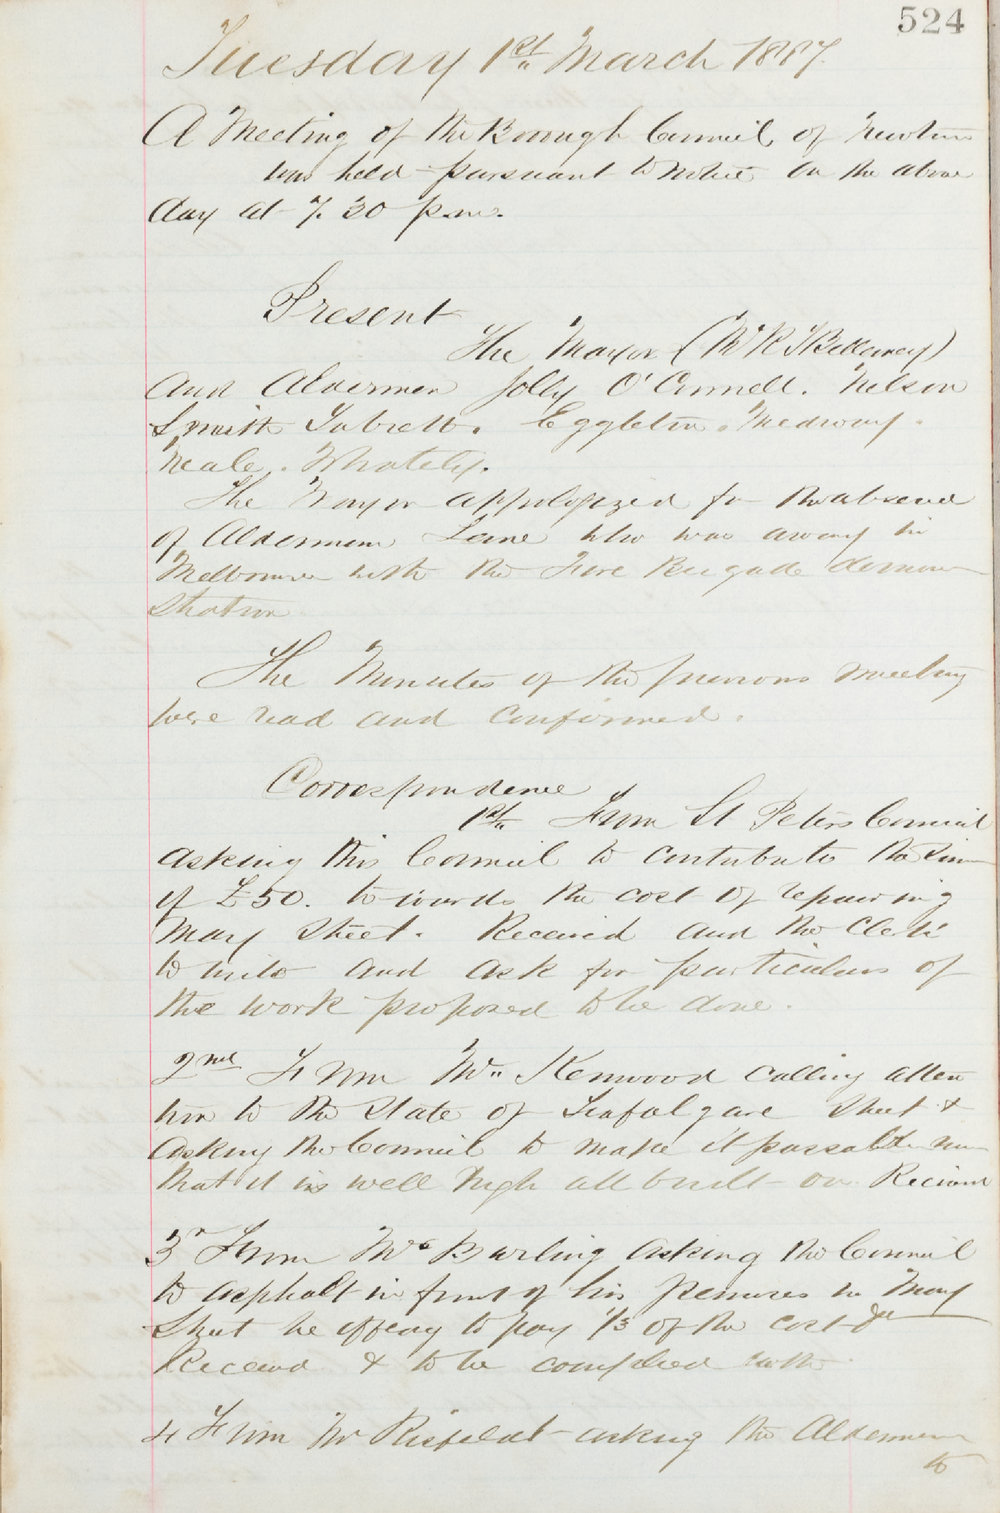 524
Tuesday 1st March 1887.
A Meeting of the Borough Council of Newtown
was held pursuant to notice on the above
day at 7.30 p.m.
Present
The Mayor (Mr R T Bellemey)
and Aldermen Jolly O'Connell. Nelson
Smith Gabrett. Eggleton. Medway.
Neale. Whately.
The Mayor appologized for the absence
of Aldermen Lane who was away in
Melbourne with the Fire Brigade demon
stration
The Minutes of the previous meeting
were read and confirmed.
Correspondence
1st From St Peters Council
asking this Council to contribute the Sum
of £50. towards the cost of repairing
Mary Street. Received and the Clerk
to write and ask for particulars of
the work proposed to be done.
2nd From Mr Kenwood calling atten
tion to the state of Trafalgare Street &
asking the Council to make it passable now
that it is well nigh all built on Received
3rd From Mr Burling asking the Council
to asphalt in front of his premises in Mary
Street he offering to pay 1/3 of the cost
Received & to be complied with
4 From Mr asking the Aldermen
to